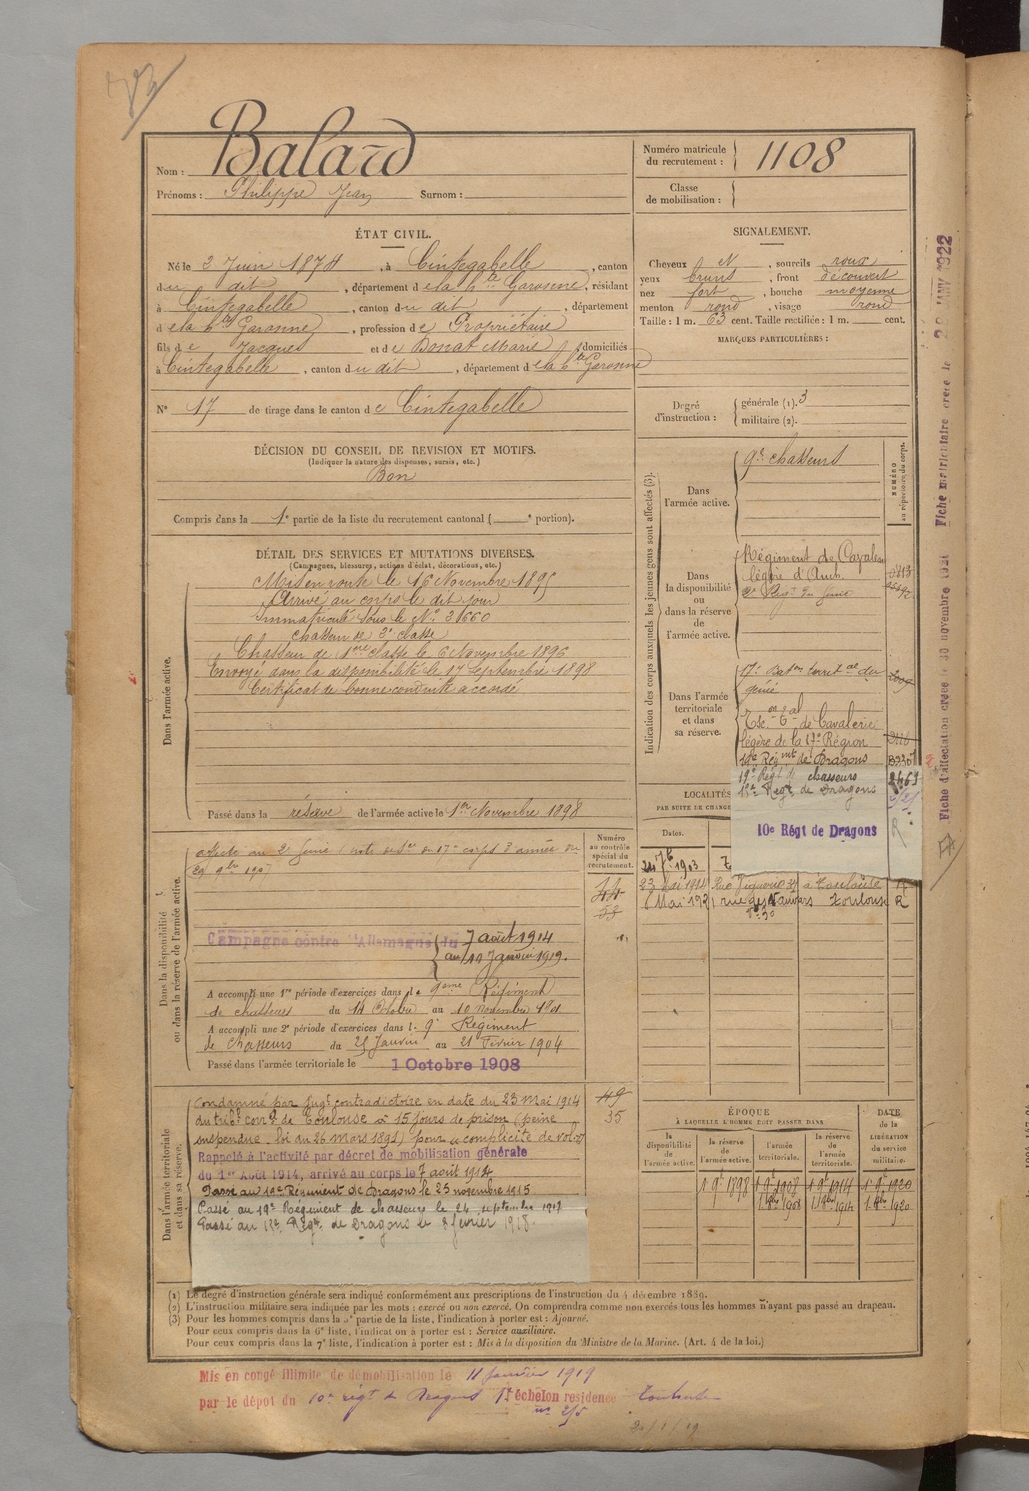 Nom : Balard
Prénoms : Philippe Jean Surnom :
Numéro matricule
du recrutement : 1108
Classe
de mobilisation :
ÉTAT CIVIL.
Né le 2 Juin 1874, à Cintegabelle, canton
du dit, département de la hte Garonne, résidant
à Cintegabelle, canton du dit, département
de la hte Garonne, profession de Propriétaire
fils de Jacques et de Bonat Marie domiciliés
à Cintegabelle, canton du dit, département de la hte Garonne
N° 17 de tirage dans le canton de Cintegabelle
SIGNALEMENT.
Cheveux et, sourcils roux
yeux bruns, front découvert
nez fort, bouche moyenne
menton rond, visage rond
Taille : 1 m. 63 cent. Taille rectifiée : 1 m. cent.
MARQUES PARTICULIÈRES :
Degré
d'instruction :
générale (1). 3
militaire (2).
DÉCISION DU CONSEIL DE REVISION ET MOTIFS.
(Indiquer la nature des dispenses, sursis, etc.)
Bon
Compris dans la 1e partie de la liste du recrutement cantonal ( e portion).
DÉTAIL DES SERVICES ET MUTATIONS DIVERSES.
(Campagnes, blessures, actions d'éclat, décorations, etc.)
Dans l'armée active.
Mis en route le 16 Novembre 1895
Arrivé au corps le dit jour
Immatriculé sous le N°
chasseur de 2e classe
Chasseur de 1re classe le 6 Novembre 1896
Envoyé dans la disponibilité le 17 Septembre 1898
Certificat de bonne conduite accordé
Passé dans la réserve de l'armée active le 1er Novembre 1898
Indication des corps auxquels les jeunes gens sont affectés (3).
NUMÉRO
au répertoire du corps.
Dans
l'armée active.
9e chasseurs
Dans
la disponibilité
ou
dans la réserve
de
l'armée active.
Régiment de Cavalerie
légère d'Auch
2e Régt du Génie
Dans l'armée
territoriale
et dans
sa réserve.
17e Baton territal du
génie
de Cavalerie
légère de la 17e Région
Régimt de Dragons
19e Régt de chasseurs
Régt de Dragons
10e Régt de Dragons
LOCALITÉS
PAR SUITE DE CHANGE
Dates.
1903
23 mai 1914 Rue à Toulouse R
Mai 192 rue des Toulouse R
Numéro
au contrôle
spécial du
recrutement.
Dans la disponibilité
ou dans la réserve de l'armée active.
affecté au 2e Génie
Campagne contre l'Allemagne du 7 août 1914
au Janvier 1919.
A accompli une 1re période d'exercices dans le 9ème Régiment
de chasseurs du 14 Octobre au 10 novembre
A accompli une 2e période d'exercices dans l. 9e Régiment
de Chasseurs du 25 Janvier au 21 Février 1904
Passé dans l'armée territoriale le 1 Octobre 1908
Dans l'armée territoriale
et dans sa réserve.
49
35
Condamné par jugt contradictoire en date du 23 Mai 1914
du tribl corrl de Toulouse à 15 jours de prison (peine
suspendue. loi du 26 Mars 1891) pour complicité de vol
Rappelé à l'activité par décret de mobilisation générale
du 1er Août 1914, arrivé au corps le 7 août 1914
Passé au Régiment de Dragons le 23 novembre 1915
Passé au 19e Régiment de chasseurs le 24 septembre 1917
Passé au Régt de Dragons le 8 février 1918.
ÉPOQUE
À LAQUELLE L'HOMME DOIT PASSER DANS
DATE
de la
LIBÉRATION
du service
militaire.
la
disponibilité
de
l'armée active.
la réserve
de
l'armée active.
l'armée
territoriale.
la réserve
de
l'armée
territoriale.
1 9e 1898 1 9e 1908 1 9e 1914 1 9e 1920
1908 1914 1920
(1) Le degré d'instruction générale sera indiqué conformément aux prescriptions de l'instruction du 4 décembre 1889.
(2) L'instruction militaire sera indiquée par les mots : exercé ou non exercé. On comprendra comme non exercés tous les hommes n'ayant pas passé au drapeau.
(3) Pour les hommes compris dans la 5e partie de la liste, l'indication à porter est : Ajourné.
Pour ceux compris dans la 6e liste, l'indication à porter est : Service auxiliaire.
Pour ceux compris dans la 7e liste, l'indication à porter est : Mis à la disposition du Ministre de la Marine. (Art. 4 de la loi.)
Mis en congé illimité de démobilisation le 11 janvier 1919
par le dépôt du 10e régt de Dragons échelon résidence Toulouse
Fiche d'affectation créée 30 novembre
Fiche matriculaire créée le JANV 1922